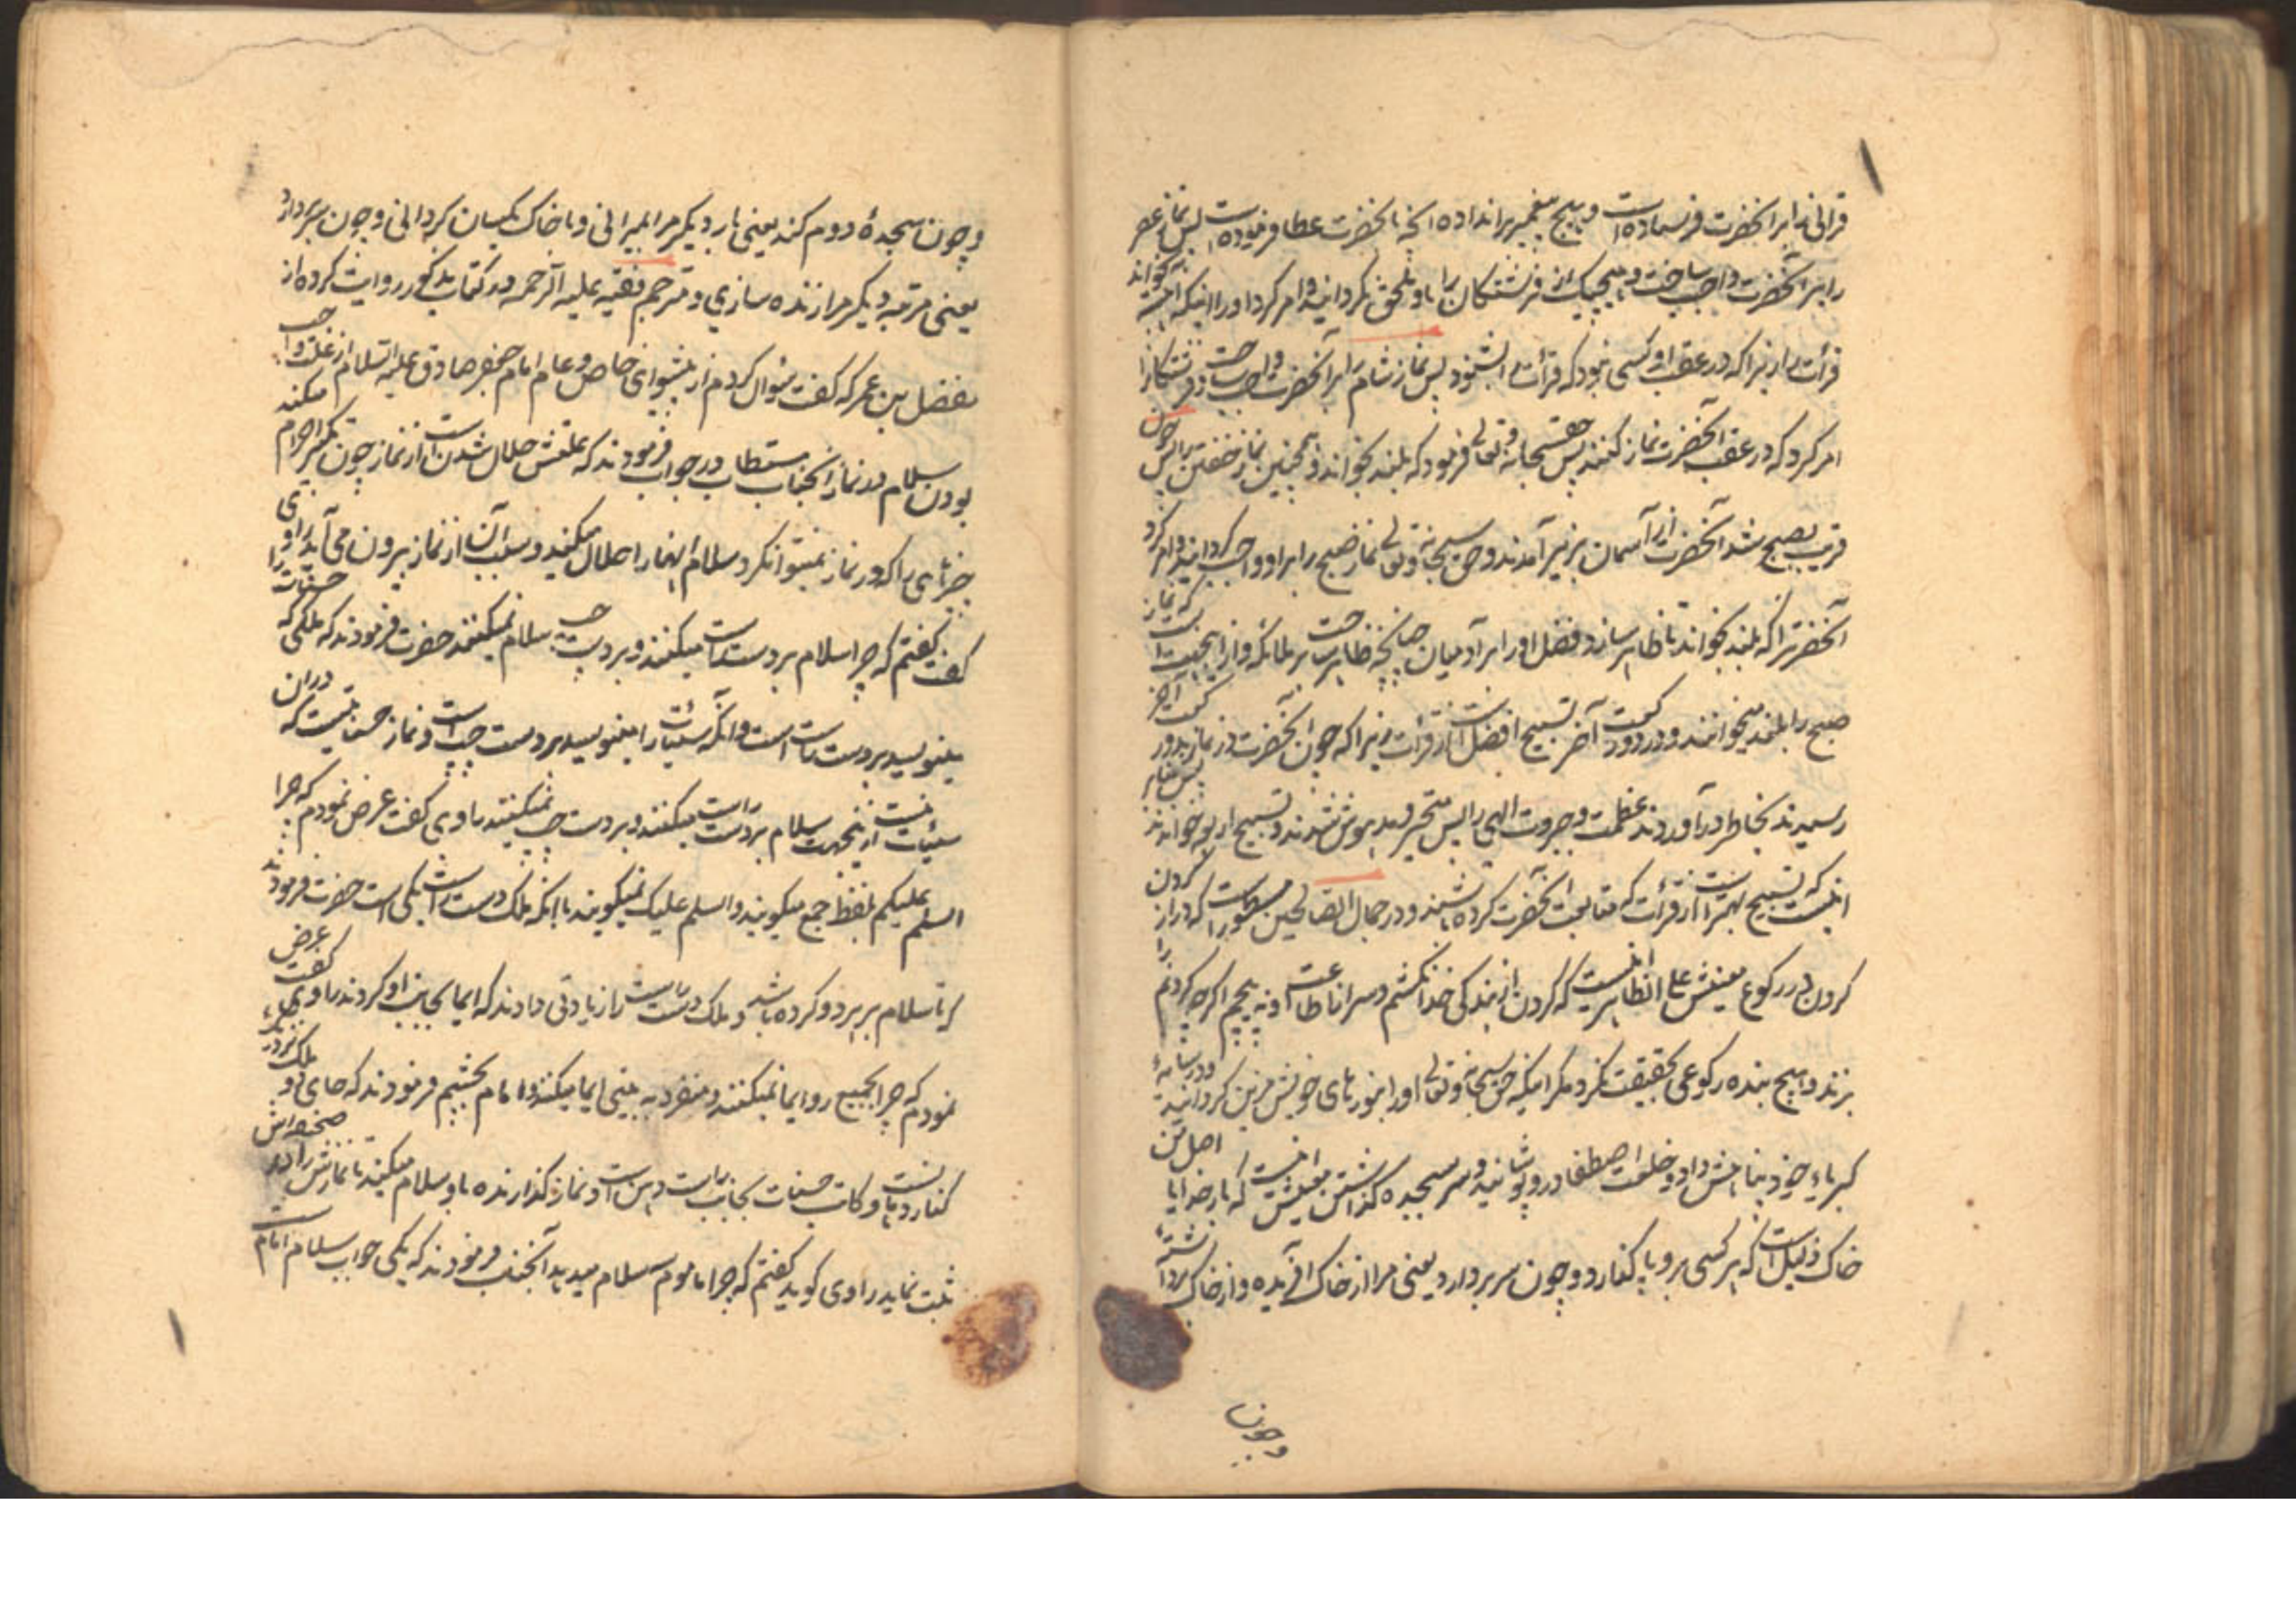 قرانی نه ابر انحضرت فرستاده است و بهیچ پیغمبر براندا ده انچه بانحضرت عطا فرموده است پس نماز عصر
را بر آنحضرت واجب ساخت و هیچیک از فرشتگان را باو ملحق نکردانید و امر کرد او را اینکه اهسته بخواند
قرأت را زیرا که در عقب او کسی نبود که قرأت او بشنود پس نماز شام را بر آنحضرت واجب ساخت و فرشتگانرا
امر کرد که در عقب آنحضرت نماز کنند پس حقسبحانه و تعالی فرمود که بلند بخواند و همچنین نماز خفتن را پس چون
قریب بصبح شد آنحضرت از آسمان بزیر آمدند و حق سبحانه و تعالی نماز صبح را بر او واجب کردانید و امر کرد
آنحضرترا که بلند بخواند تا ظاهر سازد فضل او را بر آدمیان چنانچه ظاهر ساخت بر ملائکه و از اینجهت است که نماز
صبح را بلند میخوانند و در دو رکعت آخر تسبیح افضل است از قرأت زیرا که چون آنحضرت در نماز بدو رکعت آخر
رسیدند بخاطر در آوردند عظمت و جبروت الهی را پس متحیر و مدهوش شدند و تسبیح اربعه خواندند پس بنابر
اینست که تسبیح بهتر است از قرأت که متابعت آنحضرت کرده باشند و در جمال الصالحین مسطور است که دراز کردن
کردن در رکوع معینش علی الظاهر اینست که کردن از بندگی خدا نکشم و سر از اطاعت او نه پیچم اگر چه کردنم را
بزنند و هیچ بنده رکوعی بحقیقت نکرد مگر اینکه حق سبحانه و تعالی او را بنورهای خویش مزین کردانید و در سایهٔ
کبریای خود پناهش داد و خلعت اصطفا در و پوشانید و سر بسجده گذاشتن معینش اینست که بار خدایا اصل من
خاک ذلیل است که هر کسی برو پا گذارد و چون سر بردارد یعنی مرا از خاک آفریده و از خاک برداشتهٔ
و چون
و چون سجدهٔ دوم کند یعنی بار دیگر مرا بمیرانی و با خاک یکسان کردانی و چون سر بردارد
یعنی مرتبه دیگر مرا زنده سازی و مترجم فقیه علیه الرحمه در کتاب مذکور روایت کرده از
مفضل بن عمر که گفت سؤال کردم از پیشوای خاص و عام امام جعفر صادق علیه السلام از علت واجب
بودن سلام در نماز انجناب مستطاب در جواب فرمودند که علتش حلال شدن است از نماز چون تکبیر احرام میکند
چیزهای را که در نماز نمیتوان کرد سلام انها را حلال میکنید و بسبب آن از نماز بیرون می آید راوی
گفت گفتم که چرا سلام بر دست راست میکنند و بر دست چپ سلام نمیکنند حضرت فرمودند که ملکی که حسنات را
مینویسد بر دست راست است و انکه سیئات را مینویسد بر دست چپ است و نماز حسنه ایست که دران
سیئات نیست از ینجهت سلام بر دست راست میکنند و بر دست چپ نمیکنند راوی گفت عرض نمودم که چرا
السلم علیکم بلفظ جمع میگویند و السلم علیک نمیگویند با آنکه ملک دست راست یکی است حضرت فرمودند
که تا سلام بر هر دو کرده باشد و ملک دست راست را زیادتی دادند که ایما بجانب او کردند راوی گفت عرض
نمودم که چرا بجمیع رو ایما نمیکنند و منفرد به بینی ایما میکند و امام بچشم فرمودند که جای دو ملک نزدیک
کنار دهانست و کاتب حسنات بجانب راست دهن است و نمازگذارنده باو سلام میکند تا نمازش را در صحیفه اش
ثبت نماید راوی گوید گفتم که چرا ماموم سه سلام میدهد آنجناب فرمودند که یکی جواب سلام امام است